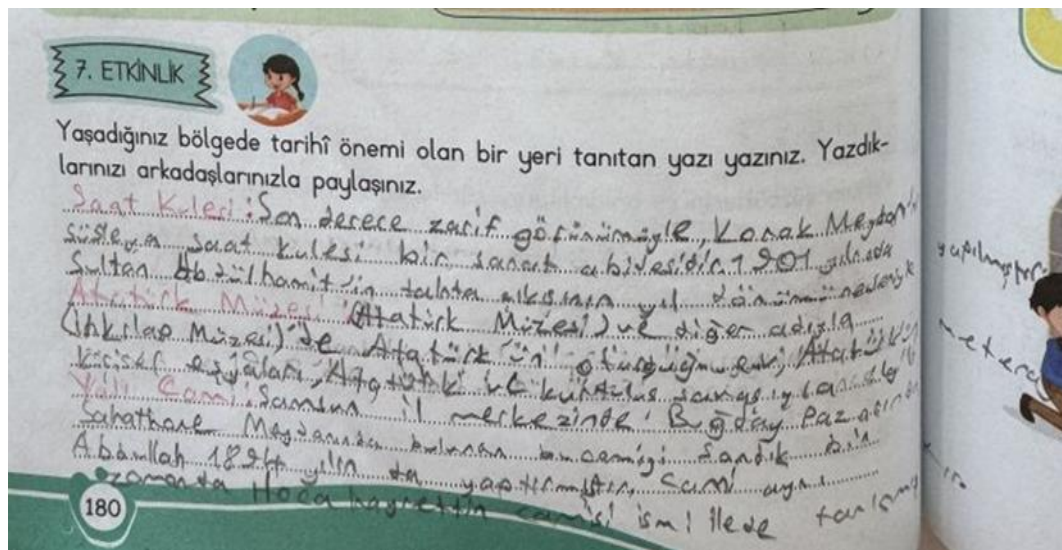 7. ETKİNLİK
Yaşadığınız bölgede tarihî önemi olan bir yeri tanıtan yazı yazınız. Yazdık-
larınızı arkadaşlarınızla paylaşınız.
Saat Kulesi: Son derece zarif görünümüyle, Konak Meydanı'nı
süsleyen saat kulesi bir sanat abidesidir. 1901 yılında yapılmıştır.
Sultan Abdülhamit'in tahta yıl dönümü
Atatürk Müzesi: (Atatürk Müzesi) ve diğer adıyla
(İnkılap Müzesi)'de Atatürk'ün oturduğu ev, Atatürk'ün
eşyaları, Atatürk ve kurtuluş savaşıyla
Yalı Cami: Samsun il merkezinde, Buğday Pazarında
Sahathane Meydanında bulunan bu camiyi Sandık
Abdullah 1894 yılında yaptırmıştır. Cami aynı
zamanda Hoca hayrettin camisi ismi ilede
180